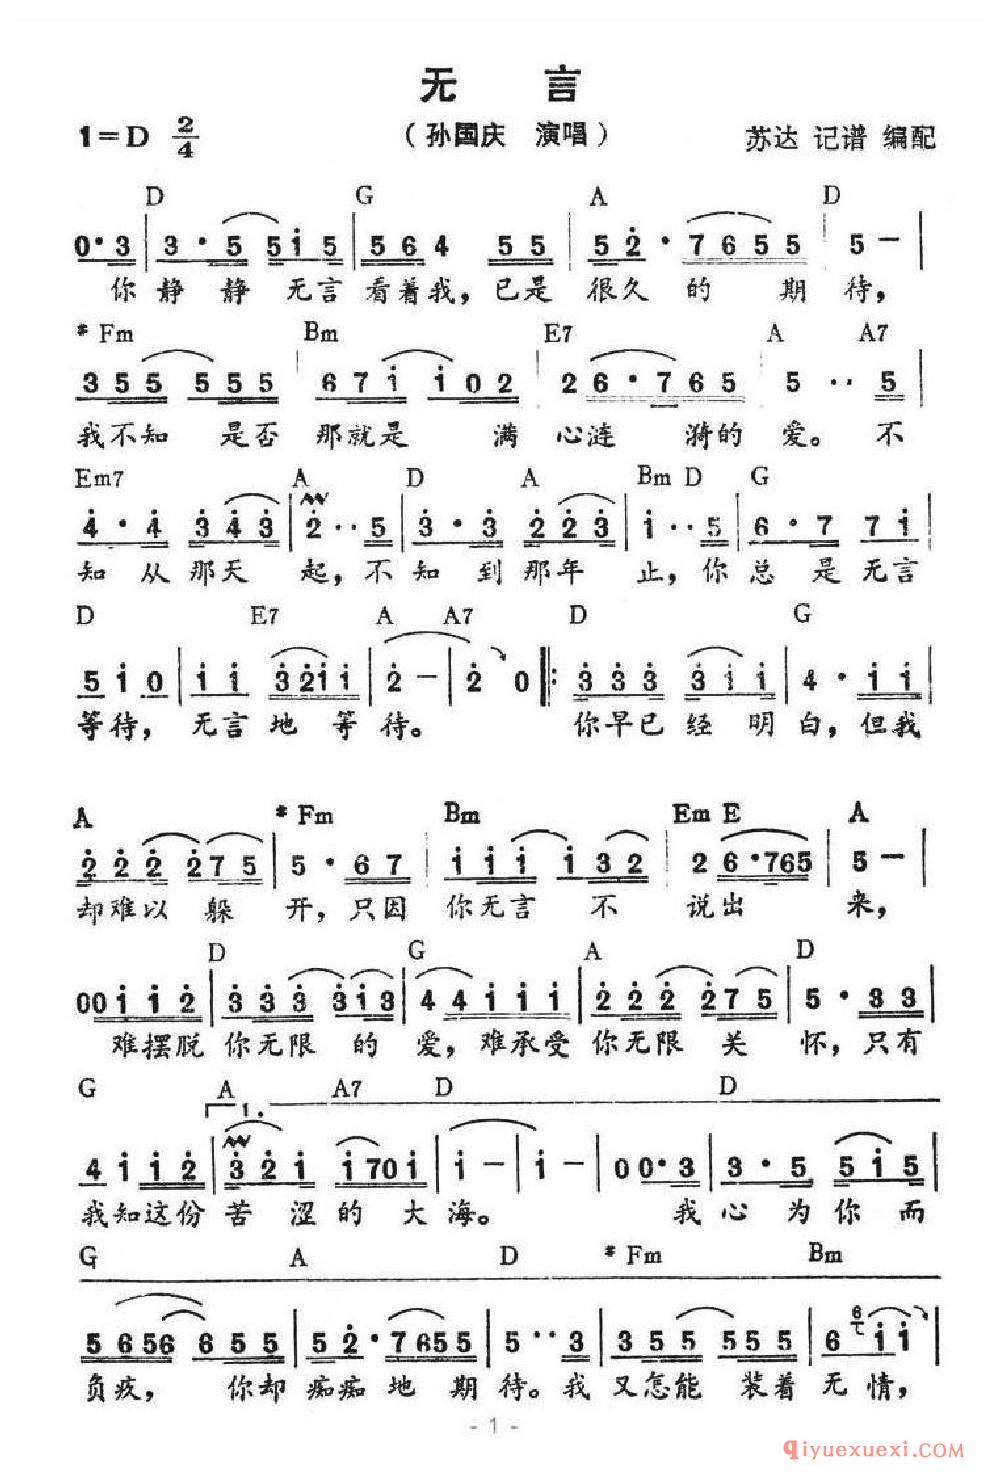 无 言
1=D 2/4 (孙国庆 演唱) 苏达 记谱 编配
D G A D
0·3 3·5 5i5 564 55 52·7655 5-
你静静无言看着我,已是很久的期待,
#Fm Bm E7 A A7
355 555 67i i02 26·765 5··5
我不知是否那就是满心涟漪的爱。不
Em7 A D A Bm D G
4·4 343 2··5 3·3 223 i··5 6·7 7i
知从那天起,不知到那年止,你总是无言
D E7 A A7 D G
5i0 ii 32ii 2- 2 0 333 3ii 4·ii
等待,无言地等待。你早已经明白,但我
A #Fm Bm Em E A
222 275 5·67 iii i32 26·765 5-
却难以躲开,只因你无言不说出来,
D G A D
00ii2 333 3i3 44iii 222 275 5·33
难摆脱你无限的爱,难承受你无限关怀,只有
G A A7 D D
1.
4ii2 32i i70i i- i- 00·3 3·5 5i5
我知这份苦涩的大海。我心为你而
G A D #Fm Bm
5656 655 52·7655 5··3 355 555 6 6ii
负疚,你却痴痴地期待。我又怎能装着无情,
- 1 -
qiyuexuexi.COM